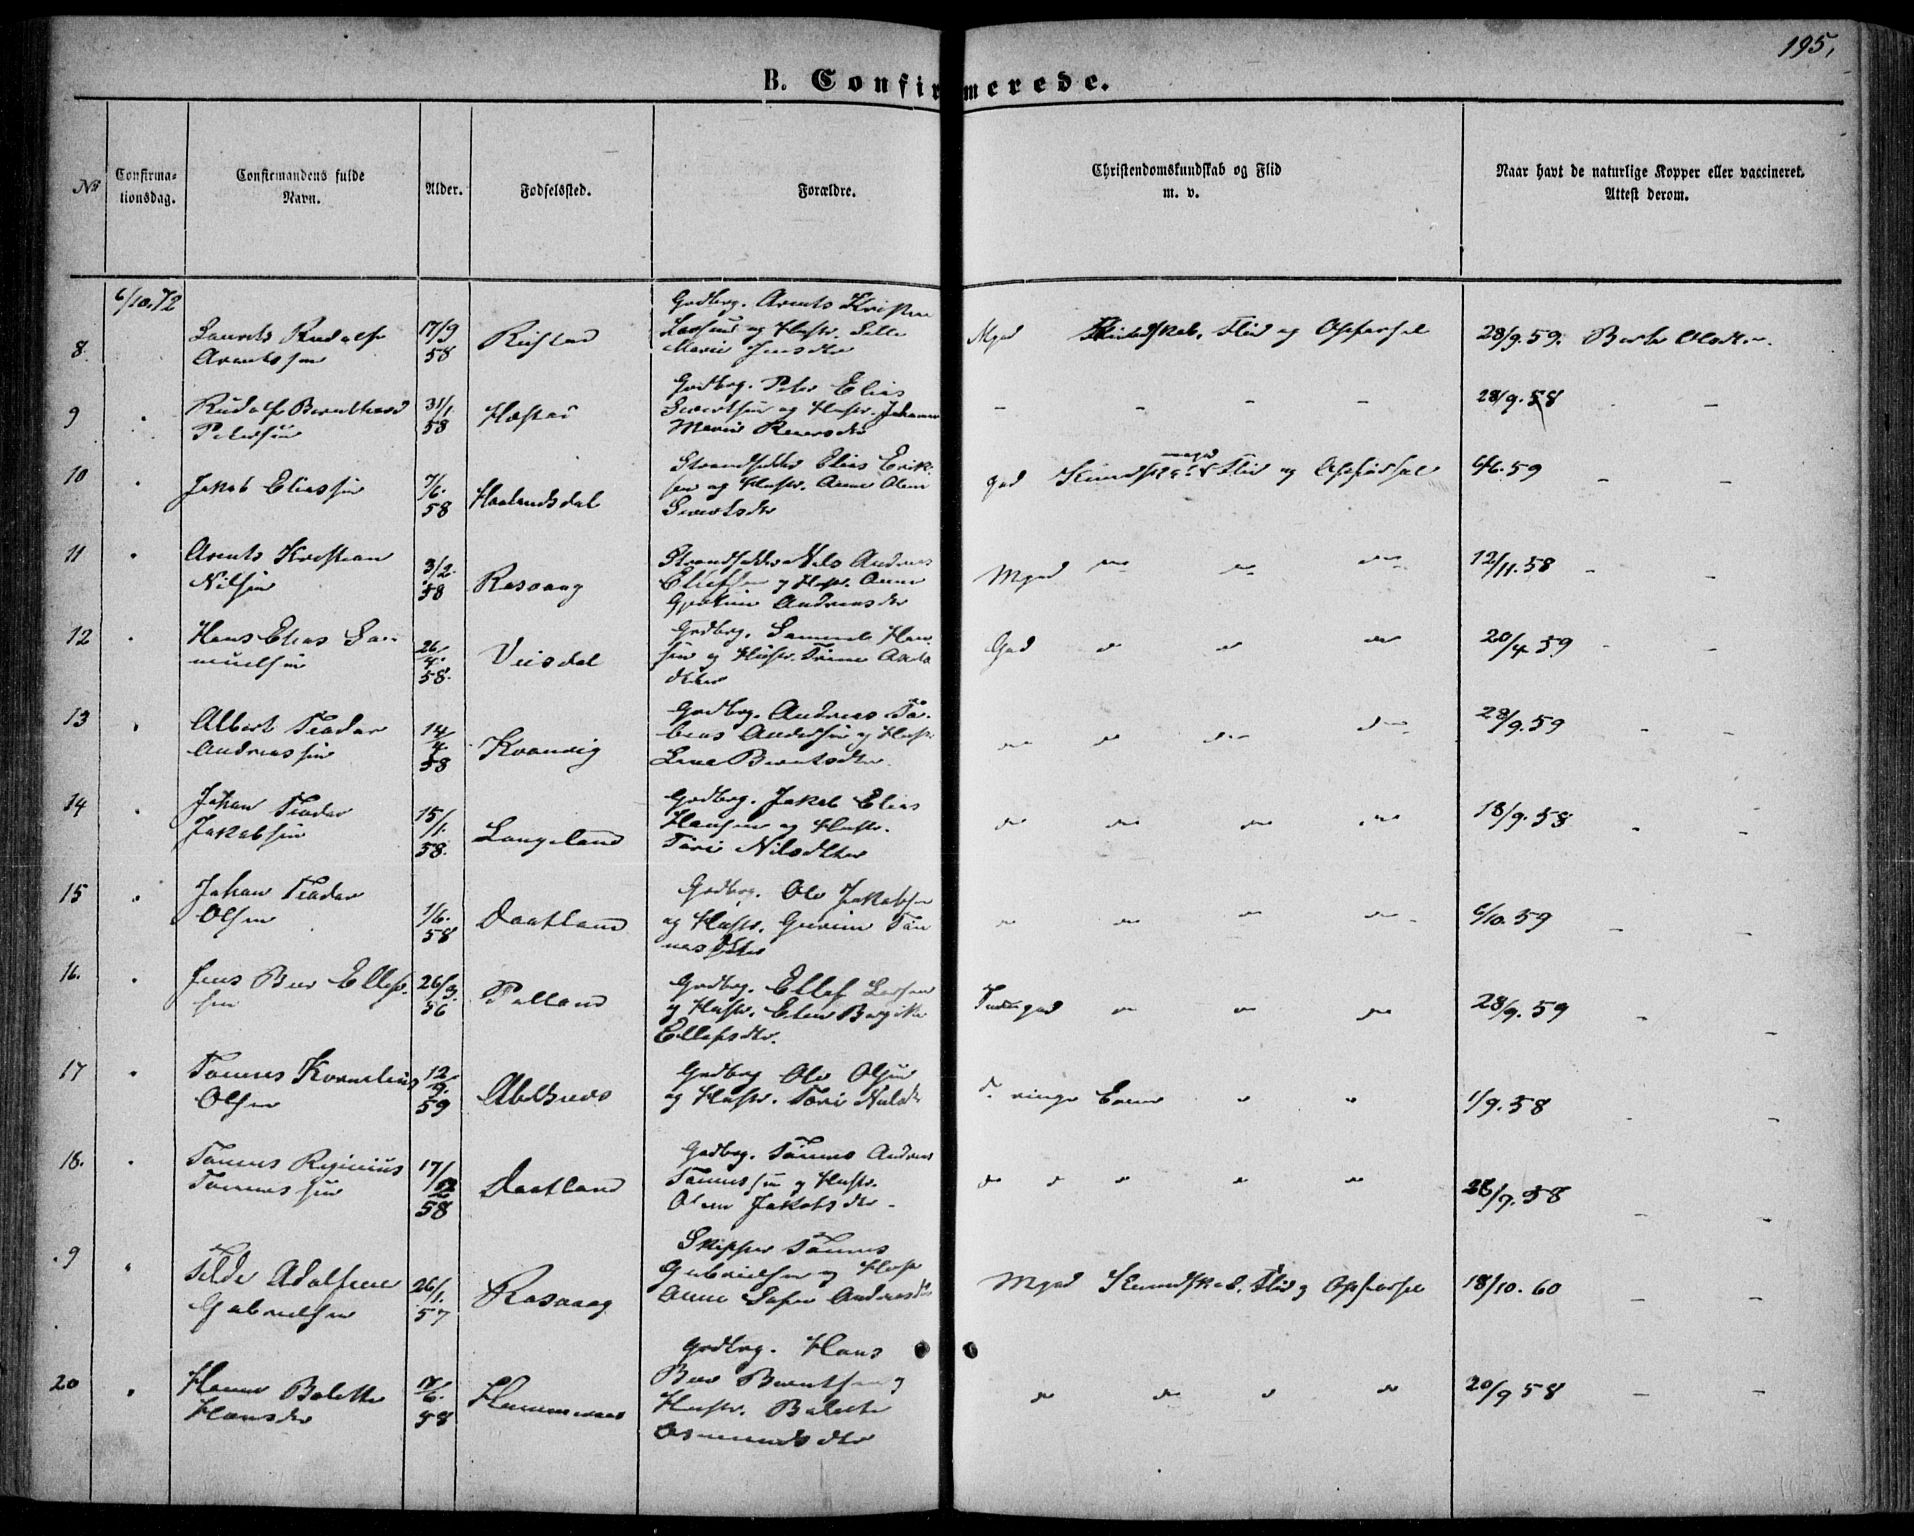 195,
B. Confirmerede.
No
Confirma-
tionsdag.
Confirmandens fulde
Navn.
Alder.
Fødselssted.
Forældre.
Christendomskundskab og Flid
m. v.
Naar havt de naturlige Kopper eller vaccineret.
Attest derom.
6/10.72
8.
Laurits Rudolf
Arentssen
17/9
58
Gndbrg. Arents Kristen
Larsen og Hustr.
Marie Jensdtr
Mgod Kundskab, Flid og Opførsel
28/9.59.
9
Rudolf Bernthard
Petersen
31/1
58
Gndbrg. Peter Elias
Sivertsen og Hustr. Johanne
Marie
28/9.58
10
Jakob Eliassen
7/6.
58
Haalandsdal
Strandsidder Elias Erik-
sen og Hustr. Anne Olene
Sivertsdtr
god Kundskab meget Flid og Opførsel
4/6.59
11
Arents Kristian
Nilsen
3/2.
58
Rasvaag
Strandsidder Nils Andreas
Ellefsen og Hustr. Anne
Andreasdtr
Mgod
12/11.58
12
Hans Elias Sa-
muelsen
26/
4.
58.
Veisdal
Gndbrg. Samuel Han-
sen og Hustr. Trine
dtter
God
20/4 59
13
Albert Teodor
Andreassen
14/
4
58
Kvanvig
Gndbrg. Andreas To-
bias Andersen og Hustr.
Lene Berntsdtr.
28/9.59
14
Johan Teodor
Jakobsen
15/
1.
58.
Langeland
Gndbrg. Jakob Elias
Hansen og Hustr.
Tori Nilsdtter
18/9.58
15
Johan Teodor
Olsen
1/6.
58
Daatland
Gndbrg. Ole Jakobsen
og Hustr. Gurine Tøn-
nesdtter
6/10.59
16.
Jens Beer Ellef-
sen
26/3.
56
Gndbrg. Ellef Larsen
og Hustr. Elen Birgitte
Ellefsdtr.
28/9.59
17
Tønnes Kornelius
Olsen
12/
9.
59
Abelsnes
Gndbrg Ole Olsen
og Hustr. Tori
ringe Evner
1/9.58
18.
Tønnes Reginius
Tønnessen
17/
12
58
Daatland
Gndbrg. Tønnes Andreas
Tønnessen og Hustr.
Olene Jakobsdtr.
28/9.58
9
Tilde Adolfine
Gabrielsen
26/1.
57
Rasvaag
Skipper Tønnes
Gabrielsen og Hustr
Anne Sofie Andreasdtr
Mgod Kundskab, Flid og Opførsel
18/10.60
20
Hanne Bolette
Hansdtr
17/6.
58
Hummernes
Gndbrg. Hans
Beer Berntsen og
Hustr. Bolette
Osmundsdtr
20/9 58